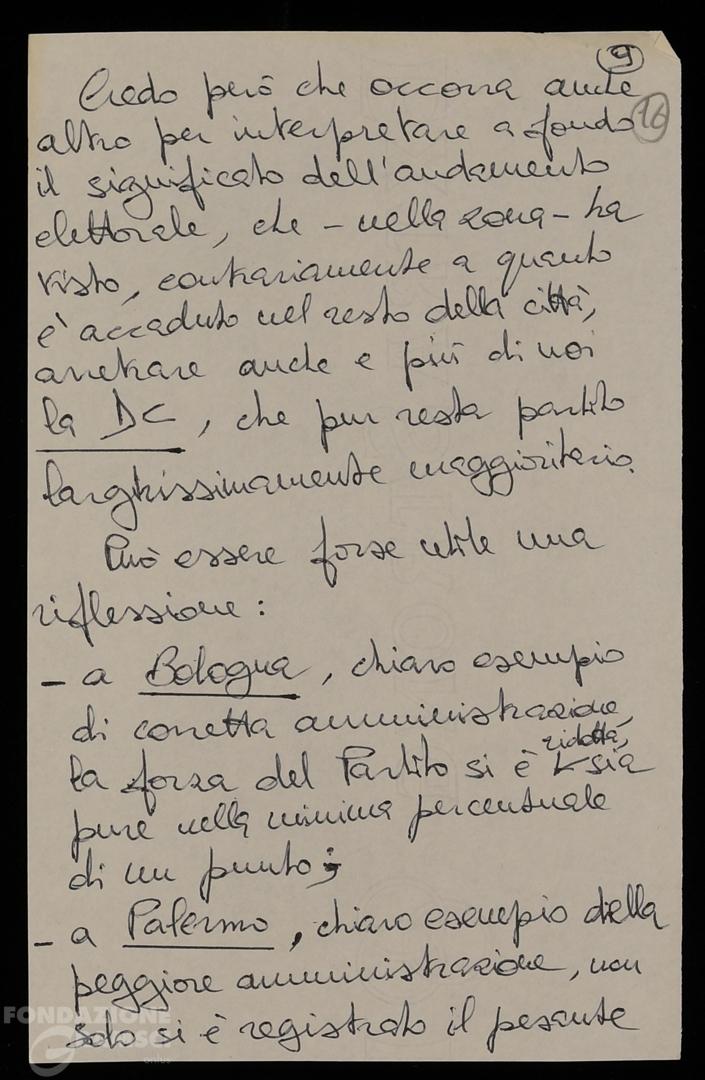 9
16
Credo però che occorra anche
altro per interpretare a fondo
il significato dell'andamento
elettorale, che - nella zona - ha
visto, contrariamente a quanto
è accaduto nel resto della città,
arretrare anche e più di noi
la DC, che pur resta partito
larghissimamente maggioritario.
Può essere forse utile una
riflessione:
- a Bologna, chiaro esempio
di corretta amministrazione,
la forza del Partito si è ridotta, sia
pure nella minima percentuale
di un punto;
- a Palermo, chiaro esempio della
peggiore amministrazione, non
solo si è registrato il pesante
FONDAZIONE
onlus